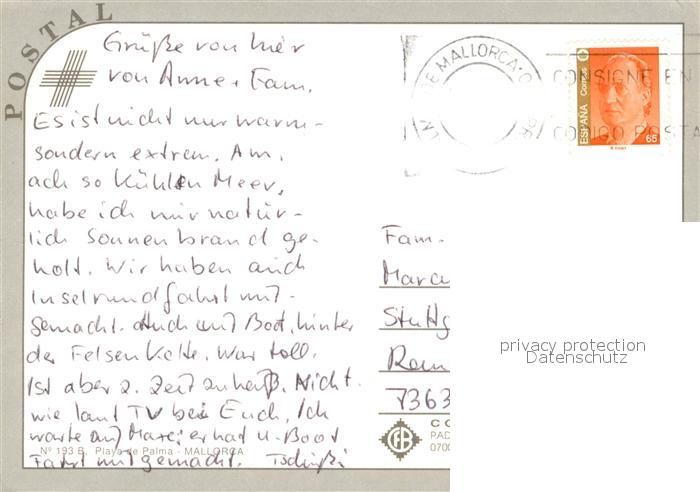 POSTAL
Grüße von hier
von Anne + Fam.
Es ist nicht nur warm -
sondern extrem. Am,
ach so kühlen Meer,
habe ich mir natür-
lich Sonnenbrand ge-
holt. Wir haben auch
Inselrundfahrt mit-
gemacht. Auch mit Boot, hinter
der Felsenkette. War toll.
Ist aber z. Zeit zu heiß. Nicht
wie laut TV bei Euch. Ich
warte auf er hat U-Boot
Fahrt mitgemacht. Tschüßi
Nº 193 B. Playa de Palma - MALLORCA
DE MALLORCA
CONSIGNE EN
CODIGO POSTA
ESPAÑA Correos
65
Fam.
Marcu
Stuttg
Rom
7363
CO
PAD
0700
privacy protection
Datenschutz